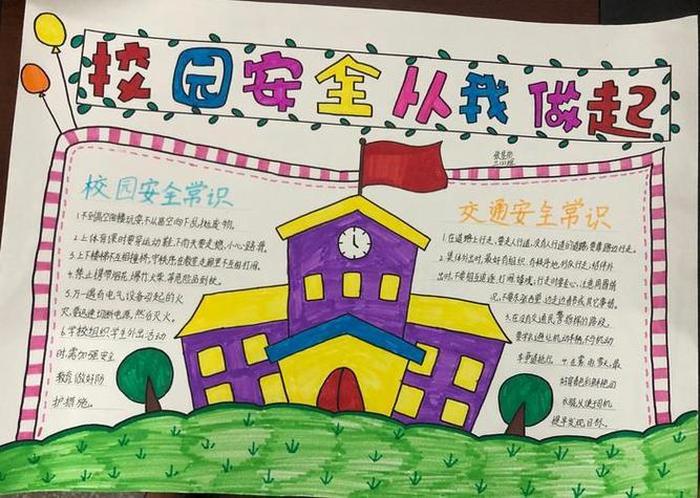 校园安全从我做起
校园安全常识
1.不到高空阳楼玩耍不从高空向下乱抛废物。
2.上体育课时要穿运动鞋,不向天要走跑,小心路滑。
3.上下楼梯不互相撞挤,守秩序在教室走廊里不互相打闹。
4.禁止携带烟花、爆竹火柴等危险品到校。
5.万一遇有电气设备引起的火
灾,要迅速切断电源,然后灭火。
6.学校组织学生外出活动
时,需加强安全
教育做好防
护措施。
交通安全常识
1.在道路上行走,要走人行道,没有人行道的道路,要靠路边行走。
2.集体外出时,最好有组织、有秩序地列队行走;结伴外
出时,不要相互追逐、打闹、嬉戏;行走时要专心,注意周围情
况,不要东张西望、边走边看书或其它事情。
3.在没有交通民警指挥的路段,
要学会避让机动车辆,不与机动
车争道抢行。4.在雾、雨、雪天,最
好穿着色彩鲜艳的
衣服,以便于司机
提早发现目标。